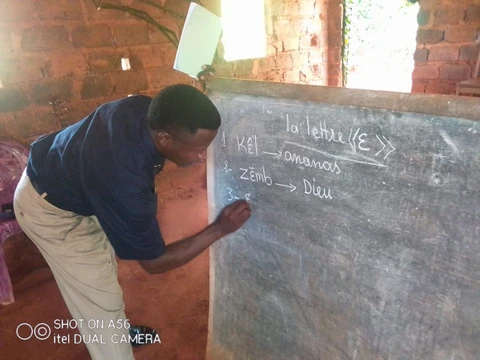 la lettre « ε »
1 Kêl → ananas
2- Zëmb → Dieu
3-
SHOT ON A56
itel DUAL CAMERA